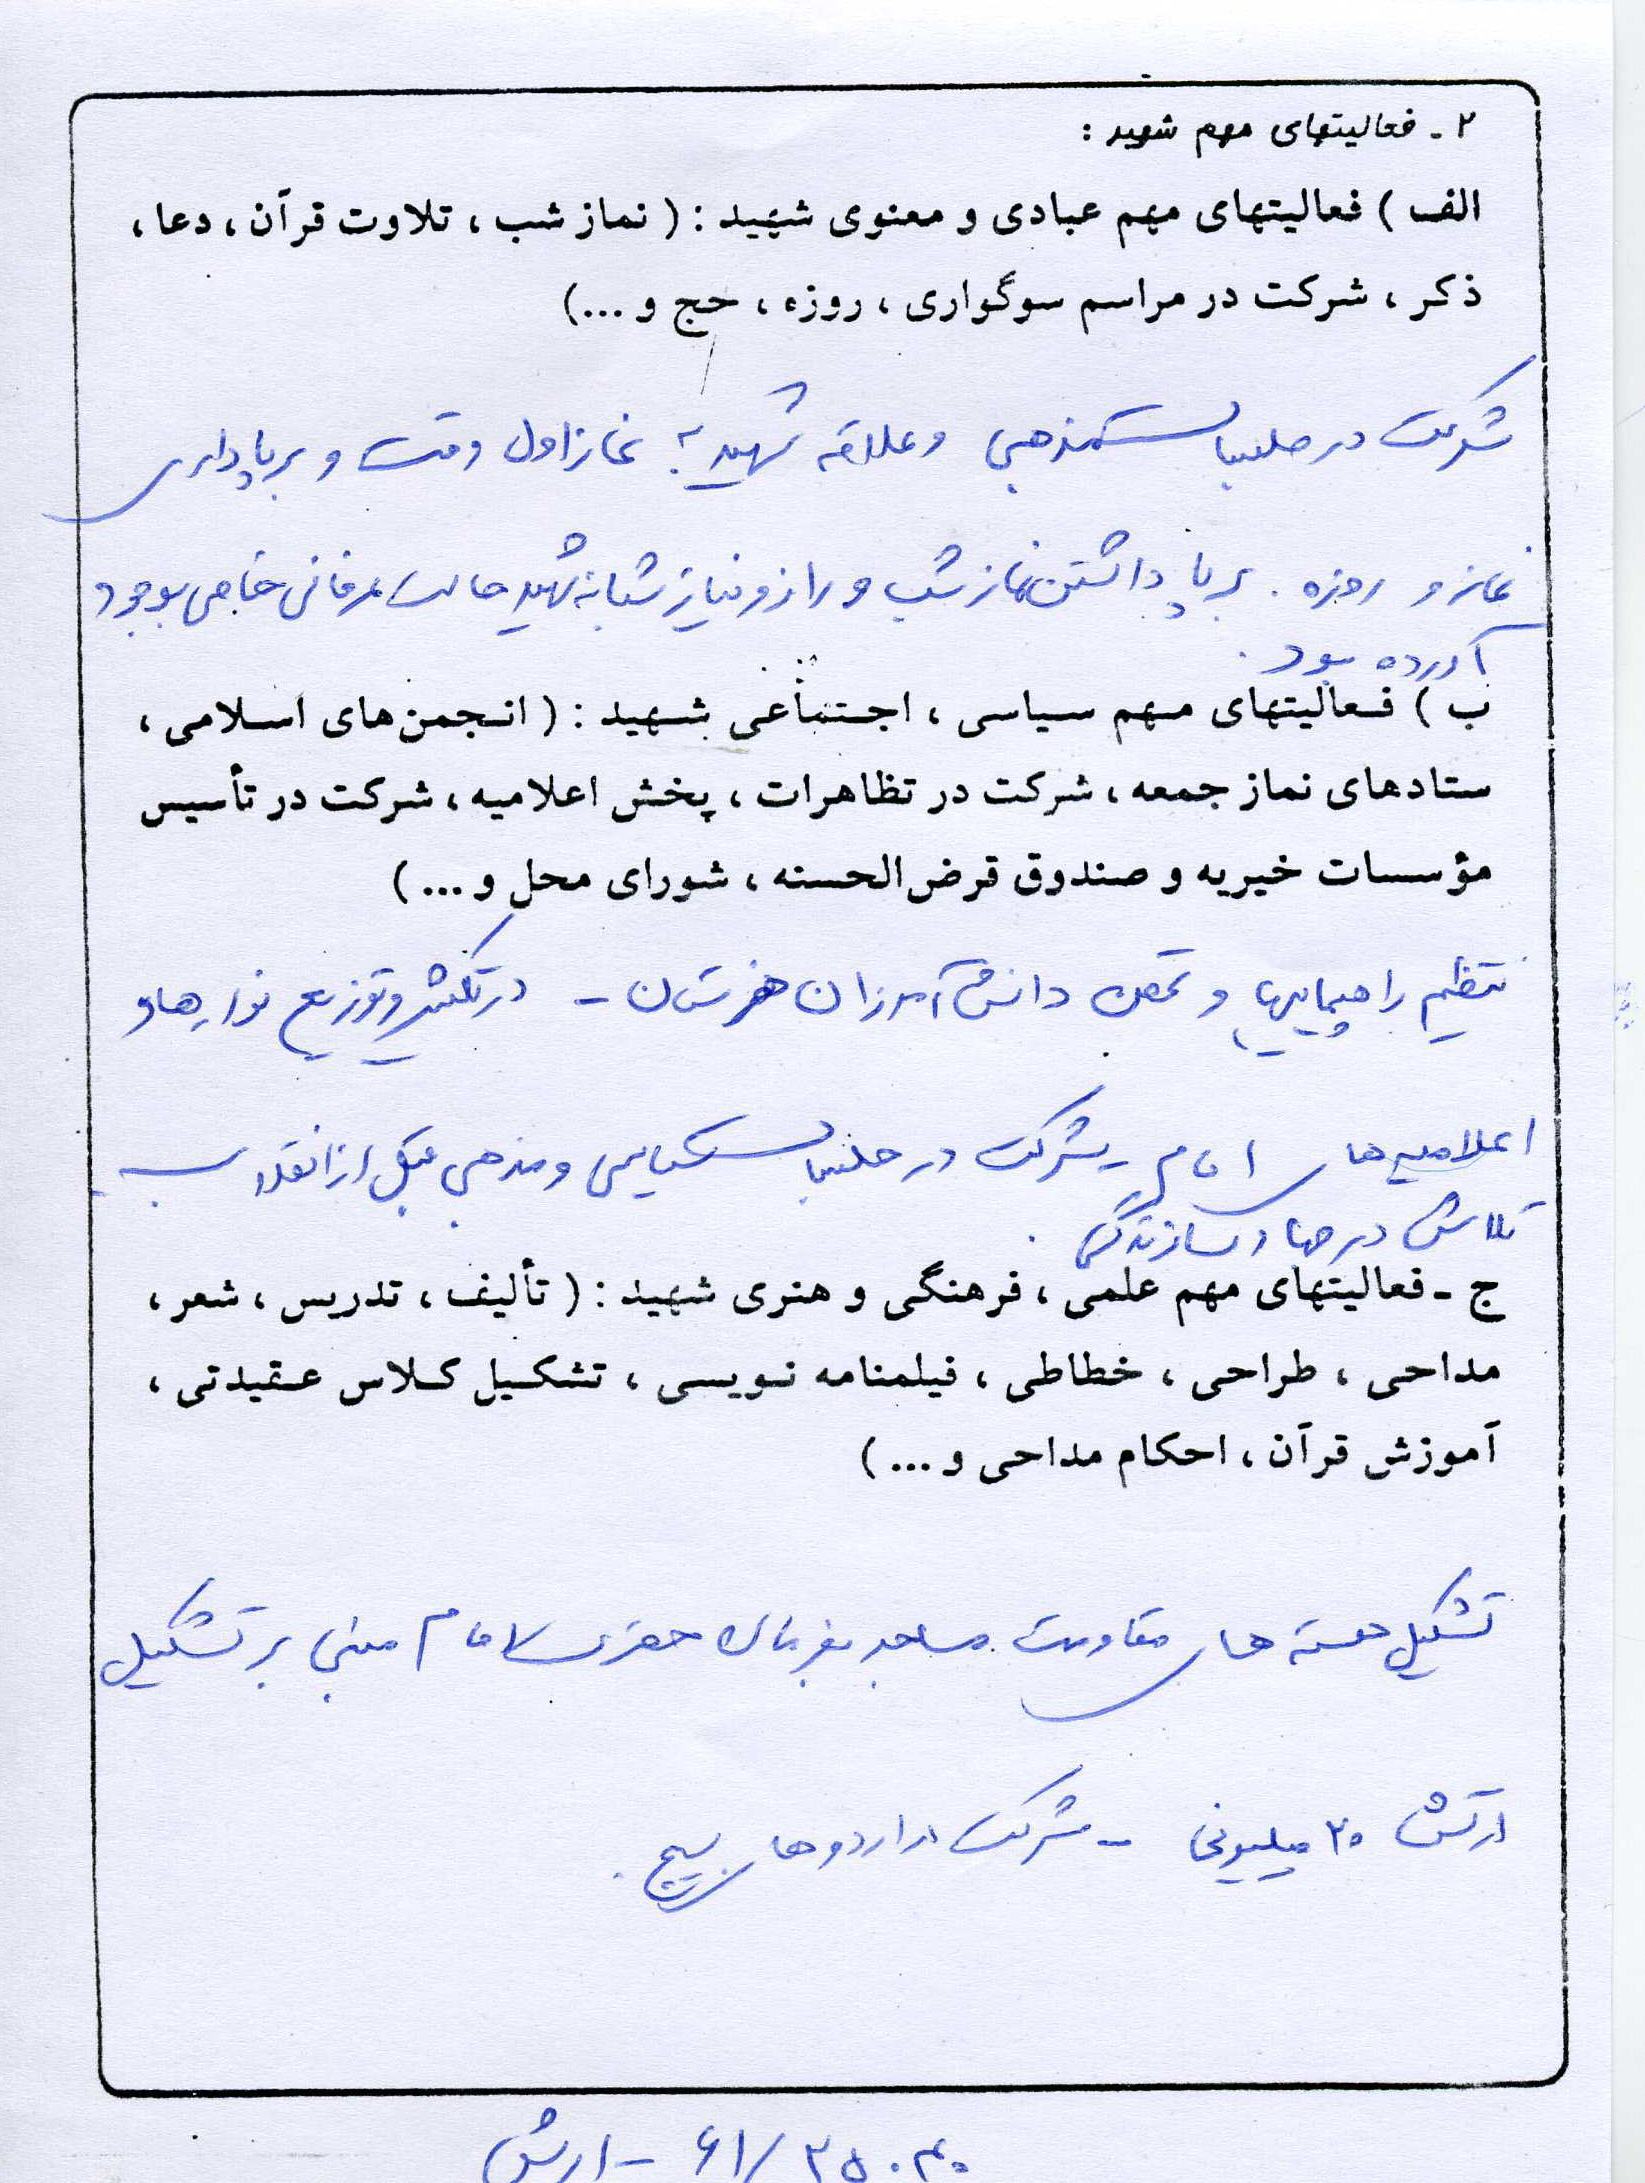 ۲ ـ فعالیتهای مهم شهید :
الف ) فعالیتهای مهم عبادی و معنوی شهید : ( نماز شب ، تلاوت قرآن ، دعا ،
ذکر ، شرکت در مراسم سوگواری ، روزه ، حج و ...)
شرکت در جلسات مذهبی و علاقه شهید به نماز اول وقت و برپاداری
نماز و روزه . برپا داشتن نماز شب و راز و نیاز شبانه شهید حالت عرفانی خاصی بوجود
آورده بود .
ب ) فعالیتهای مهم سیاسی ، اجتماعی شهید : ( انجمن‌های اسلامی ،
ستادهای نماز جمعه ، شرکت در تظاهرات ، پخش اعلامیه ، شرکت در تأسیس
مؤسسات خیریه و صندوق قرض‌الحسنه ، شورای محل و ... )
تنظیم راهپیماییها و تحصن دانش آموزان هنرستان - در تکثیر و توزیع نوارها و
اعلامیه‌های امام - شرکت در جلسات سیاسی و مذهبی قبل از انقلاب .
تلاش در جهاد سازندگی .
ج ـ فعالیتهای مهم علمی ، فرهنگی و هنری شهید : ( تألیف ، تدریس ، شعر ،
مداحی ، طراحی ، خطاطی ، فیلمنامه نویسی ، تشکیل کلاس عقیدتی ،
آموزش قرآن ، احکام مداحی و ... )
تشکیل هسته های مقاومت مساجد بفرمان حضرت امام مبنی بر تشکیل
ارتش ۲۰ میلیونی - شرکت در اردوهای بسیج .